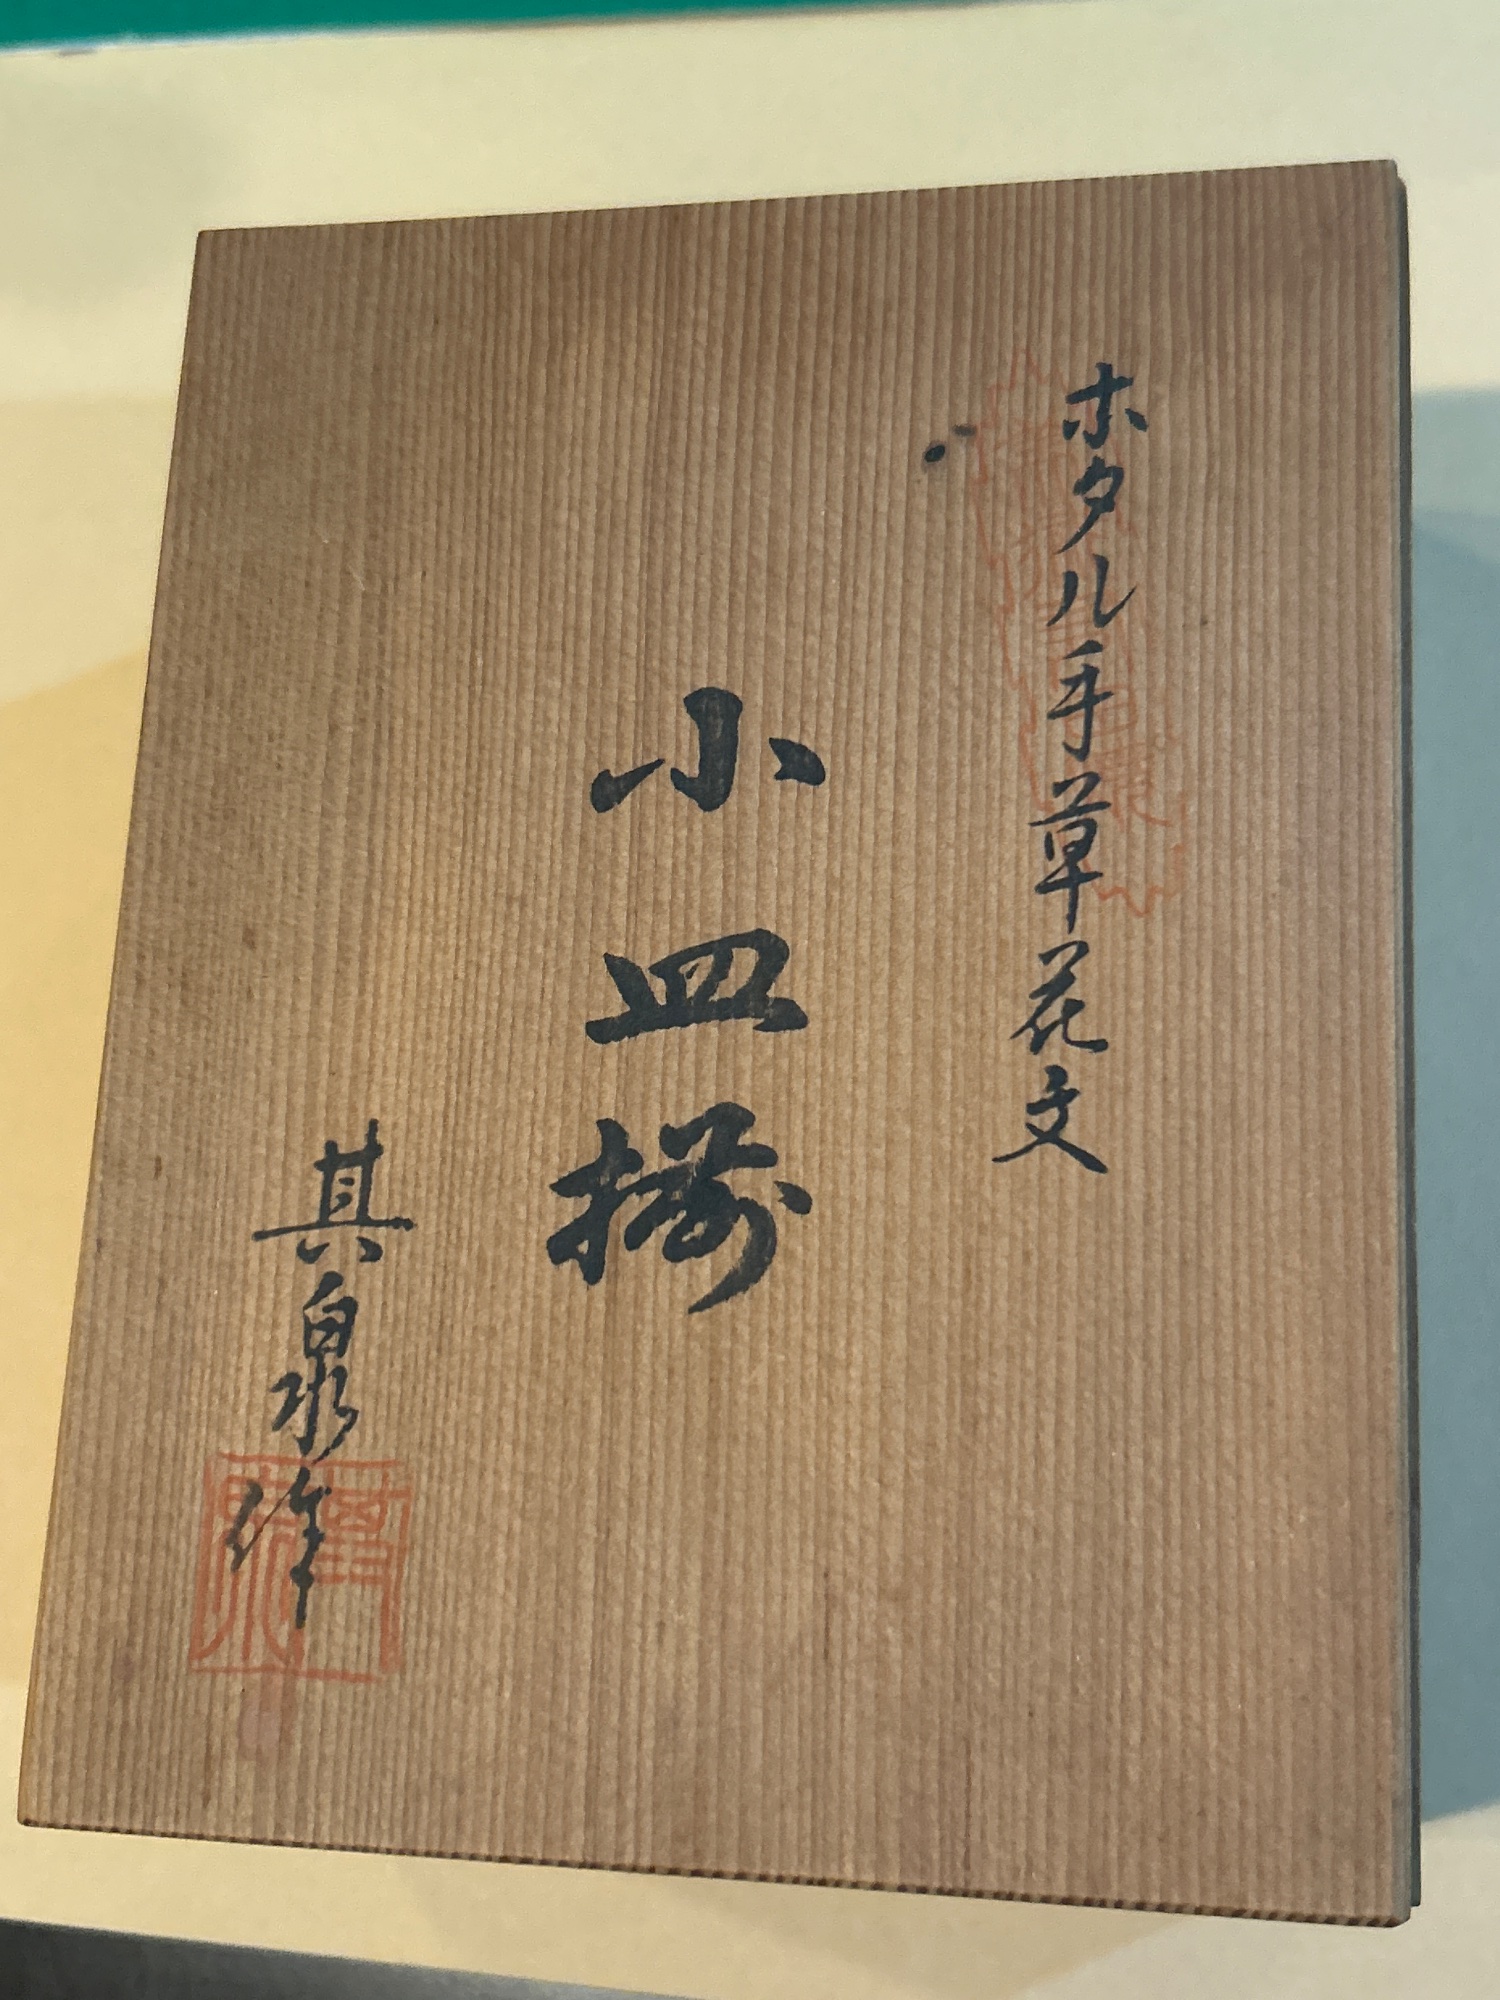 ホタル手草花文
小皿揃
其泉作